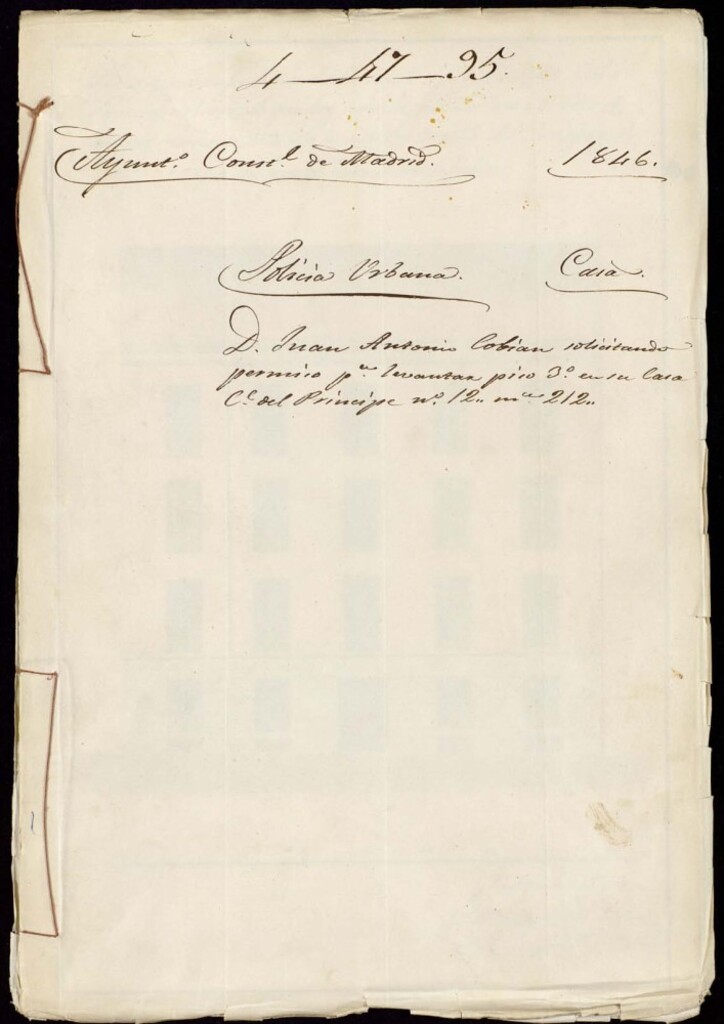 4-47-95.
Ayunt.º Const.l de Madrid. 1846.
Policia Urbana. Casa.
D. Juan Antonio Cobian solicitando
permiso p.ª levantar piso 3.º en su Casa
C.e del Principe n.º 12.. m.na 212..